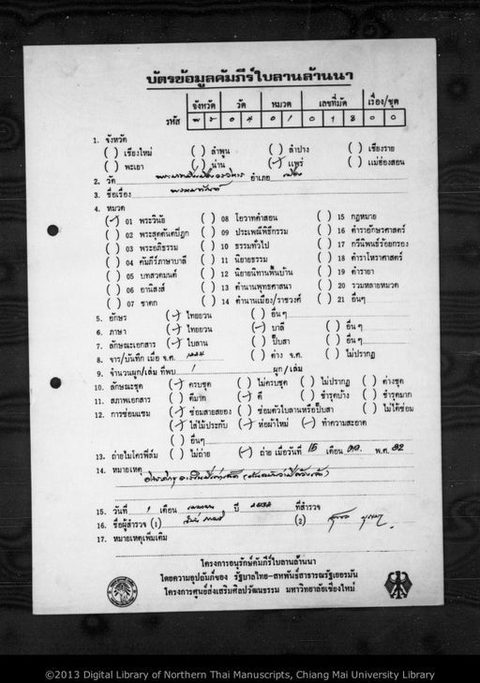 บัตรข้อมูลคัมภีร์ใบลานล้านนา
จังหวัด วัด หมวด เลขที่มัด เรื่อง/ชุด
รหัส พ ร 0 4 0 1 0 1 8 0 0
1. จังหวัด
( ) เชียงใหม่ ( ) ลำพูน ( ) ลำปาง ( ) เชียงราย
( ) พะเยา ( ) น่าน ( ) แพร่ ( ) แม่ฮ่องสอน
2. วัด อำเภอ เมือง
3. ชื่อเรื่อง
4. หมวด
( ) 01 พระวินัย ( ) 08 โอวาทคำสอน ( ) 15 กฎหมาย
( ) 02 พระสุตตันตปิฎก ( ) 09 ประเพณีพิธีกรรม ( ) 16 ตำรายักษรศาสตร์
( ) 03 พระอภิธรรม ( ) 10 ธรรมทั่วไป ( ) 17 กวีนิพนธ์ร้อยกรอง
( ) 04 คัมภีร์ภาษาบาลี ( ) 11 นิยายธรรม ( ) 18 ตำราโหราศาสตร์
( ) 05 บทสวดมนต์ ( ) 12 นิยายนิทานพื้นบ้าน ( ) 19 ตำรายา
( ) 06 อานิสงส์ ( ) 13 ตำนานพุทธศาสนา ( ) 20 รวมหลายหมวด
( ) 07 ชาดก ( ) 14 ตำนานเมือง/ราชวงศ์ ( ) 21 อื่นๆ
5. อักษร ( ) ไทยยวน ( ) อื่น ๆ
6. ภาษา ( ) ไทยยวน ( ) บาลี ( ) อื่น ๆ
7. ลักษณะเอกสาร ( ) ใบลาน ( ) ปั๊บสา ( ) อื่น ๆ
8. จาร/บันทึก เมื่อ จ.ศ. ( ) ต่าง จ.ศ. ( ) ไม่ปรากฏ
9. จำนวนผูก/เล่ม ที่พบ 1 ผูก/เล่ม
10. ลักษณะชุด ( ) ครบชุด ( ) ไม่ครบชุด ( ) ไม่ปรากฏ ( ) ต่างชุด
11. สภาพเอกสาร ( ) ดีมาก ( ) ดี ( ) ชำรุดบ้าง ( ) ชำรุดมาก
12. การซ่อมแซม ( ) ซ่อมสายสยอง ( ) ซ่อมตัวใบลานหรือปั๊บสา ( ) ไม่ได้ซ่อม
( ) ใส่ไม้ประกับ ( ) ห่อผ้าใหม่ ( ) ทำความสะอาด
( ) อื่นๆ
13. ถ่ายไมโครฟิล์ม ( ) ไม่ถ่าย ( ) ถ่าย เมื่อวันที่ 15 เดือน พ.ศ. 32
14. หมายเหตุ
15. วันที่ 1 เดือน เมษายน ปี 2532 ที่สำรวจ
16. ชื่อผู้สำรวจ (1) (2)
17. หมายเหตุเพิ่มเติม
โครงการอนุรักษ์คัมภีร์ใบลานล้านนา
โดยความอุปถัมภ์ของ รัฐบาลไทย-สหพันธ์สาธารณรัฐเยอรมัน
โครงการศูนย์ส่งเสริมศิลปวัฒนธรรม มหาวิทยาลัยเชียงใหม่
©2013 Digital Library of Northern Thai Manuscripts, Chiang Mai University Library